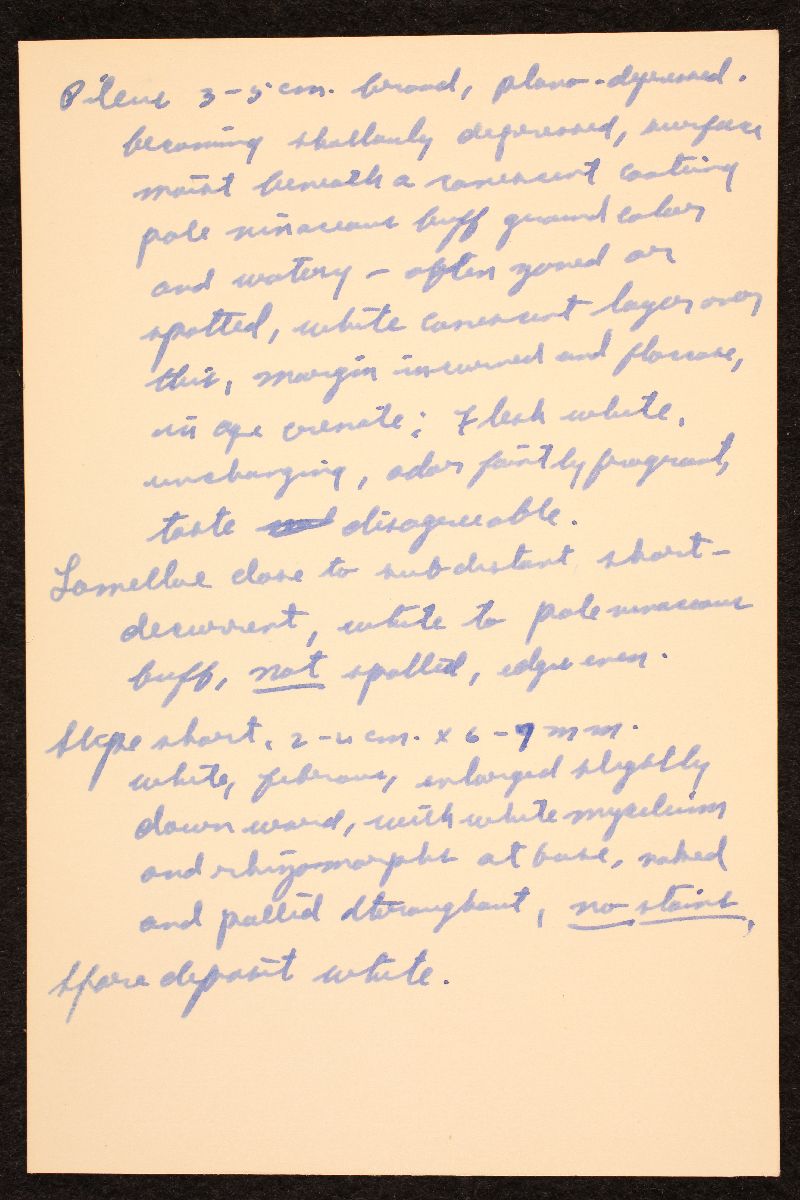 Pileus 3-5 cm. broad, plano-depressed.
becoming shallowly depressed, surface
moist beneath a canescent coating
pale vinaceous buff ground color
and watery - often zoned or
spotted, white canescent layer over
this, margin incurved and floccose,
in age crenate; Flesh white,
unchanging, odor faintly fragrant,
taste disagreeable.
Lamellae close to subdistant, short-
decurrent, white to pale vinaceous
buff, not spotted, edges even.
Stipe short, 2-4 cm. x 6-9 mm.
white, fibrous, enlarged slightly
downward, with white mycelium
and rhizomorphs at base, naked
and pallid throughout, no stains,
Spore deposit white.